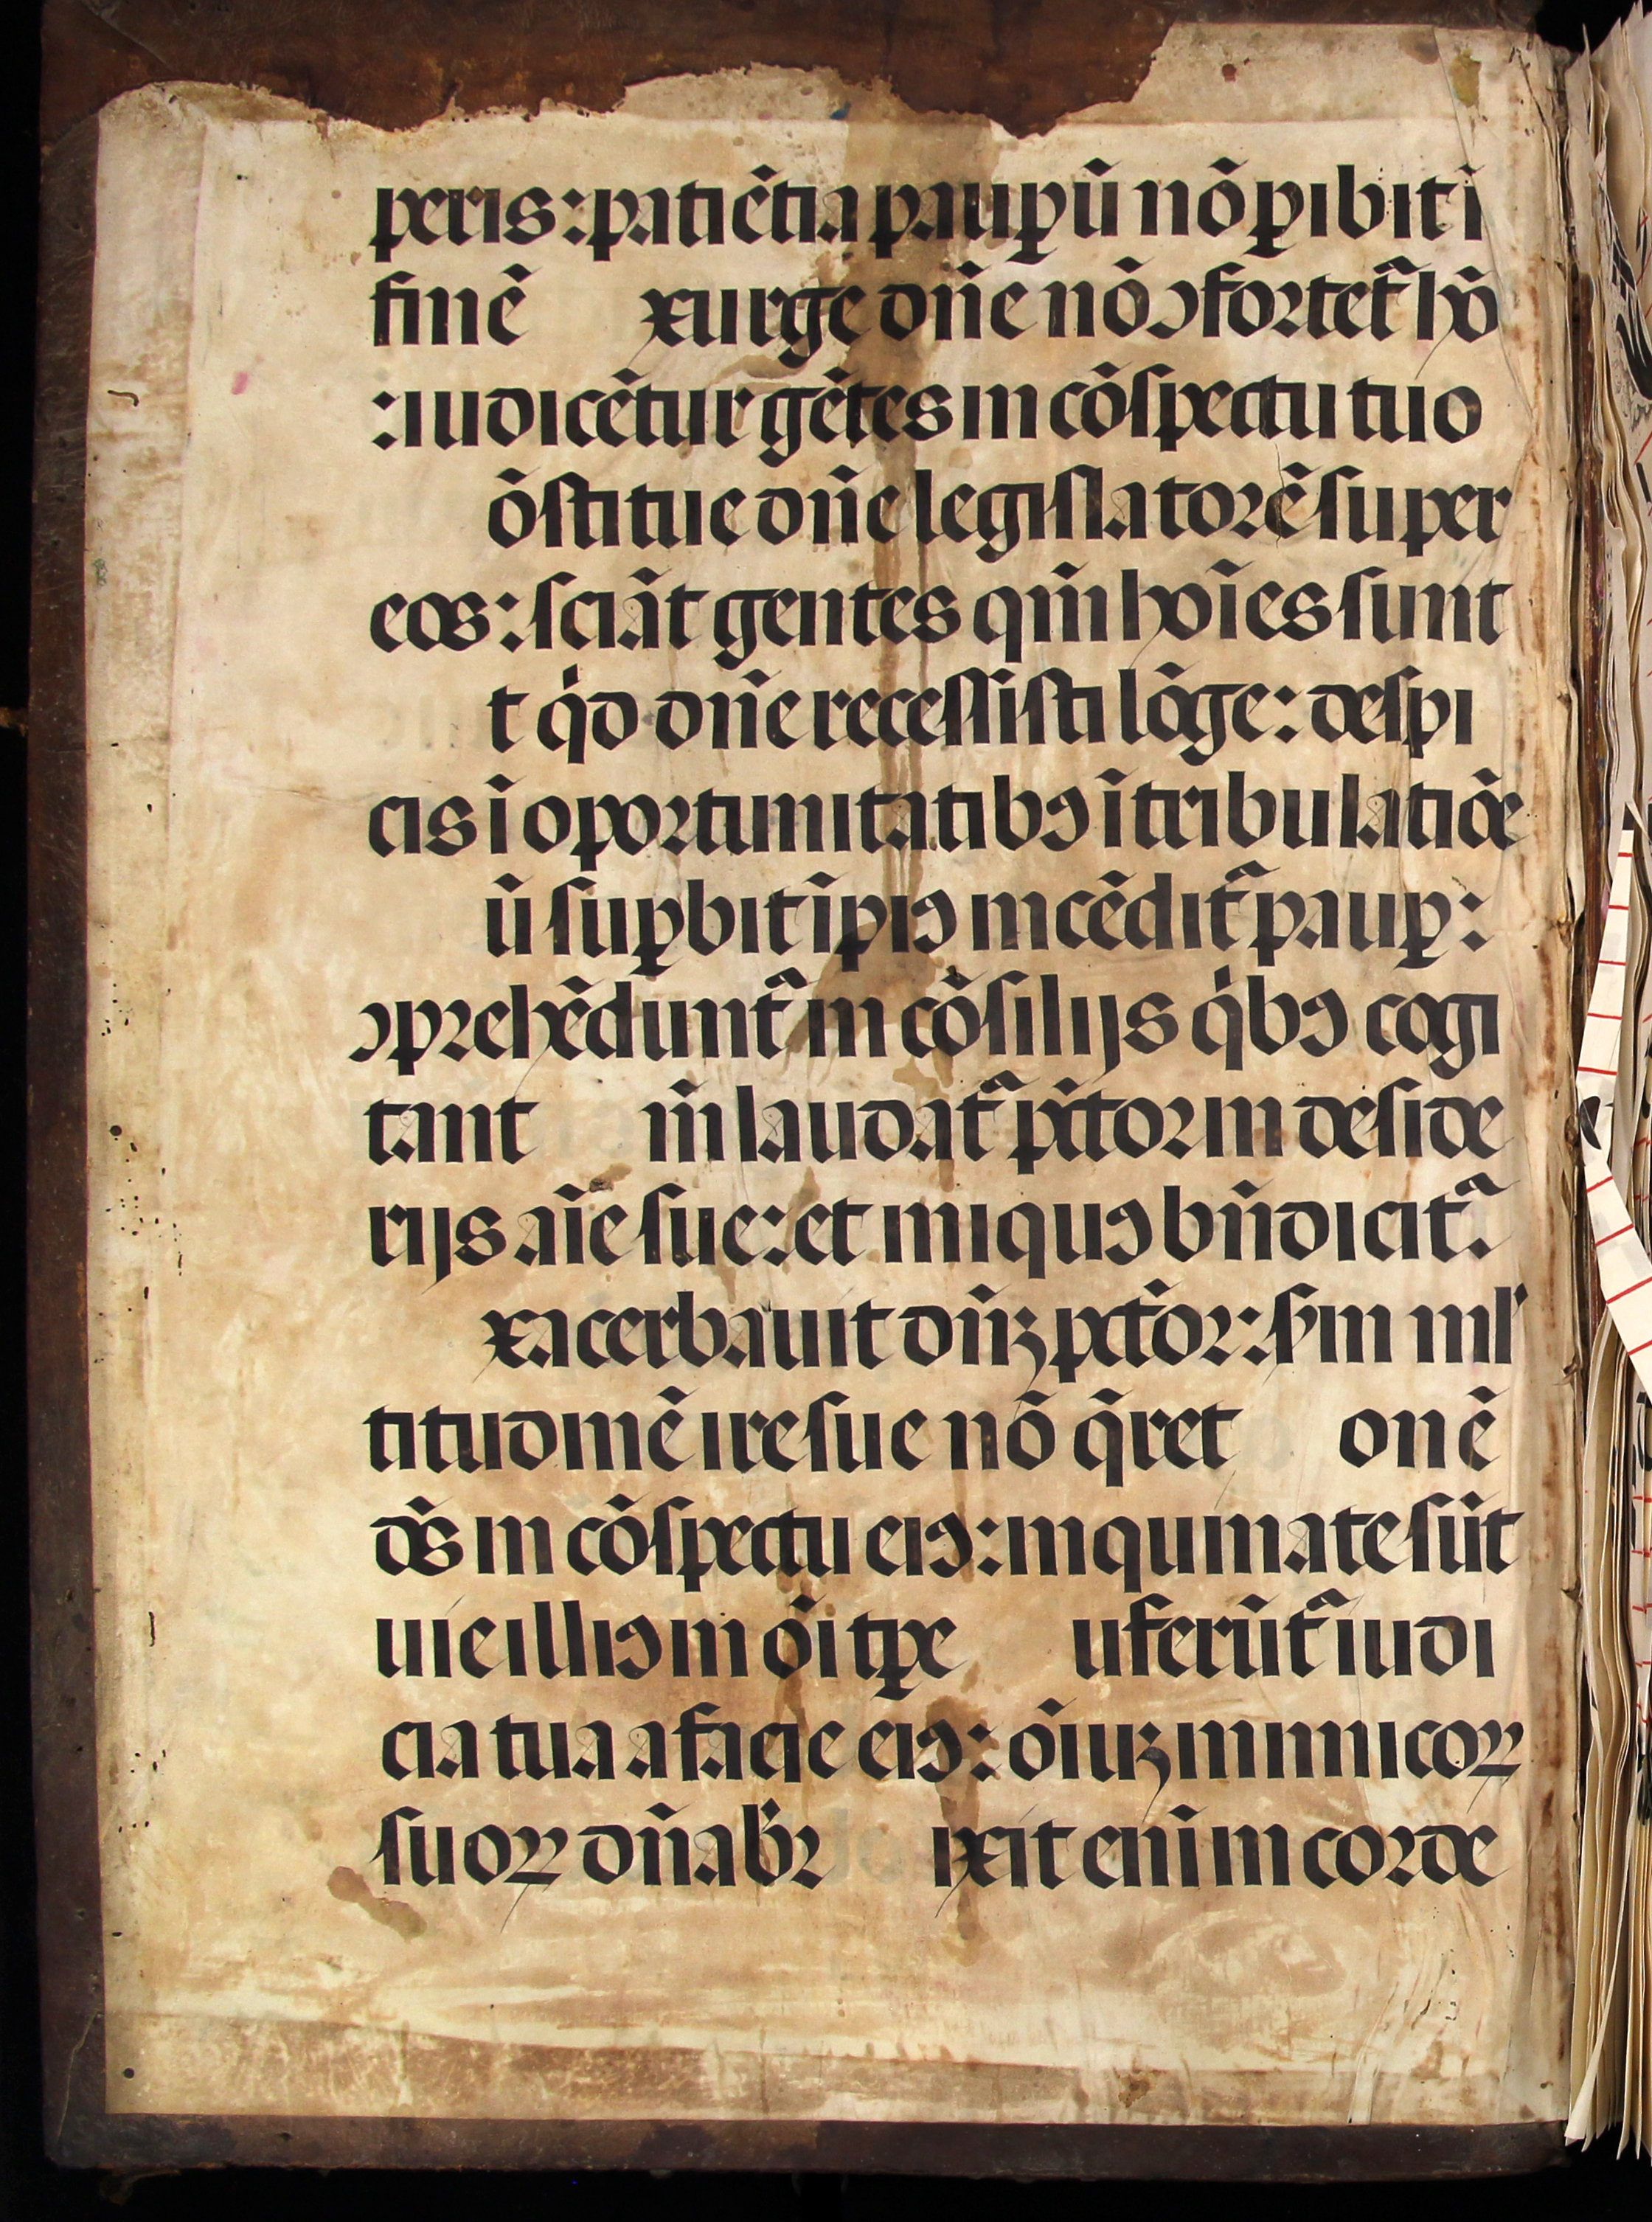 peris: patiẽtia paup̱ũ nõ p̱ibit ĩ
finẽ xurge dñe nõ ↄfortet᷑ hõ
: iudicẽtur gẽtes in cõſpectu tuo
õſtitue dñe legiſlatorẽ ſuper
eos: ſciãt gentes qm̃ hoĩes ſunt
t qͥd dñe receſſiſti lõge: deſpi
cis ĩ oportunitatibꝰ ĩ tribulatiõe
ũ ſuꝑbit ĩpiꝰ incẽdit᷑ pauꝑ:
ↄprehẽdunt᷑ in cõſilijs qͥbꝰ cogi
tant m̃ laudat᷑ pc̃tor in deſide
rijs aĩe ſue: et iniquꝰ bñdicit᷑.
xacerbauit dñꝫ pct̃or: ẜm ml̓
titudinẽ ire ſue nõ q̃ret onẽ
dс̃ in cõſpectu eiꝰ: inquinate ſũt
uie illiꝰ in õi tꝑe uferũt᷑ iudi
cia tua a facie eiꝰ: õiuꝫ inimicoꝝ
ſuoꝝ dñabr̃ ixit eni᷒m in corde